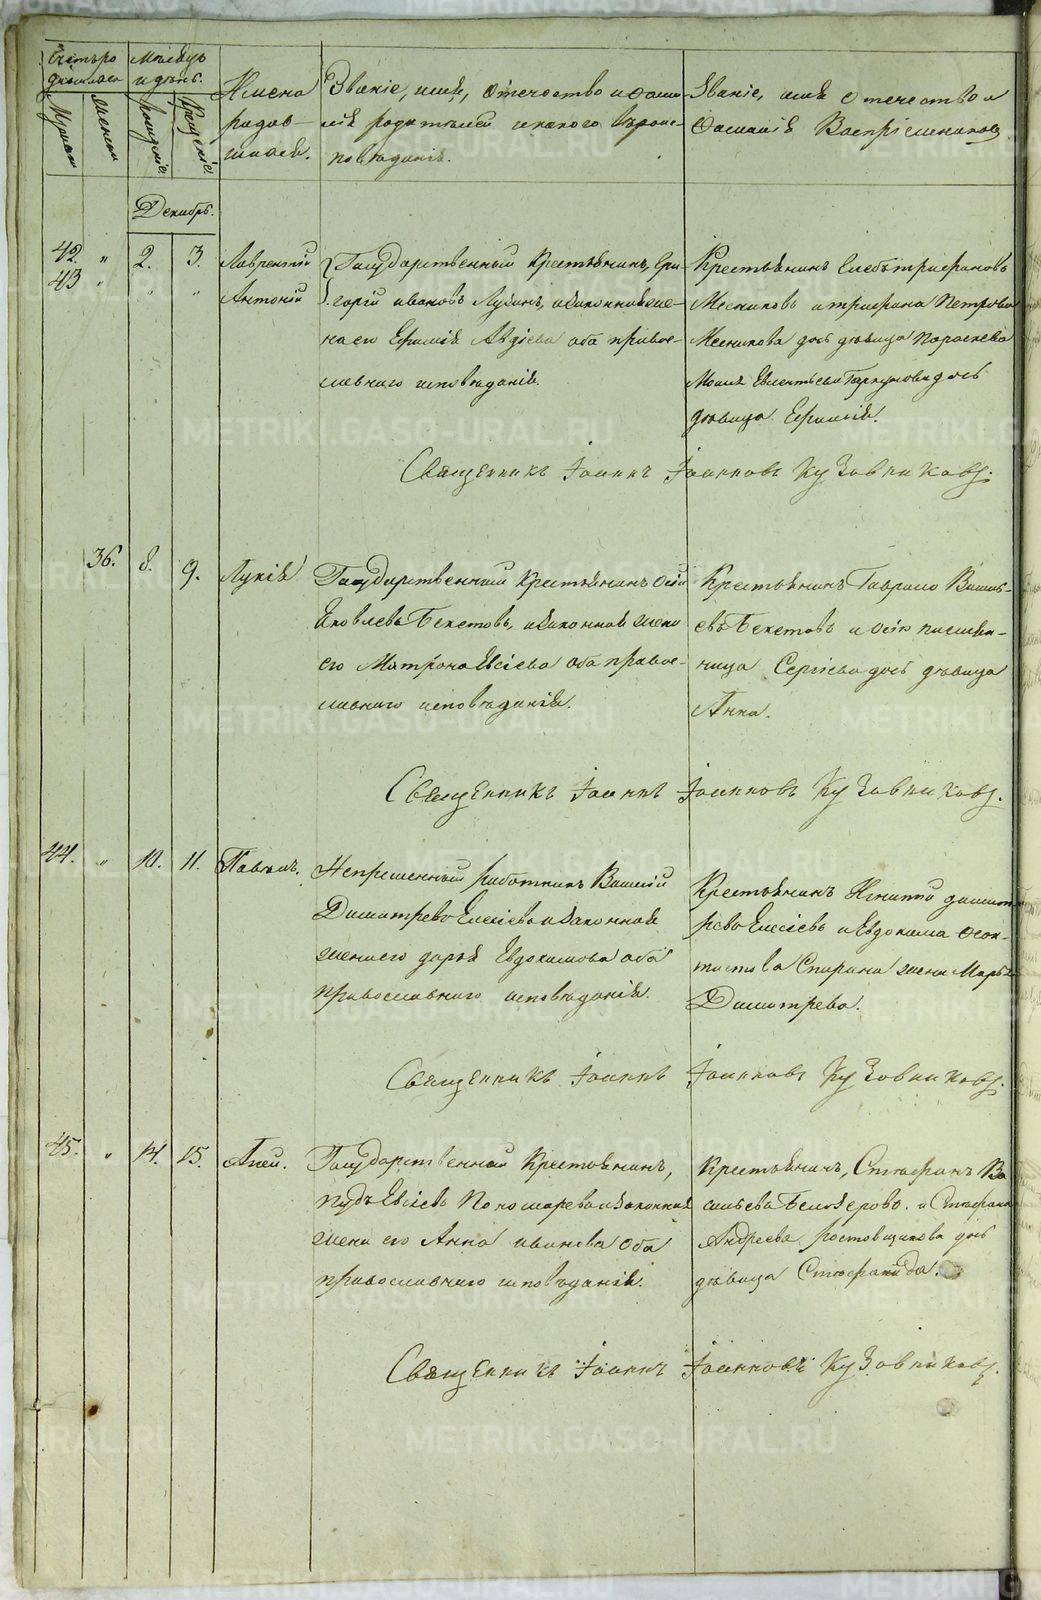 Счетъ ро
дившихся
Мѣсяцъ
и день.
Мужска
Женска
рожденіе.
Крещеніе.
Имена
родив-
шихся.
Званіе, имя, отечество и фами
лія родителей и какого вѣроис
повѣданія.
Званіе, имя отечество и
фамилія Воспріемниковъ
Декабрь.
42. " 2. 3. Лаврентій
43 " " " Антоній
Государственный Крестьянинъ Гри
горій Ивановъ и законная же-
на его Евфимія Авдіева оба право-
славнаго исповѣданія.
Крестьянинъ Глебъ Трифоновъ
Мясниковъ и Трифона Петрова
Мясникова дочь дѣвица Параскева
дочь
дѣвица Ефимія.
Священникъ Іоаннъ Іоанновъ Кузовниковъ.
36. 8. 9. Лукія
Государственный Крестьянинъ Осій
Яковлевъ Бекетовъ, и законная жена
его Матрона Евсіева оба право-
славнаго исповѣданія.
Крестьянинъ Гаврило Василь-
евъ Бекетовъ и
Сергіева дочь дѣвица
Анна.
Священникъ Іоаннъ Іоанновъ Кузовниковъ.
44. " 10. 11. Павелъ.
Непременный работникъ Василій
Димитрево Елисіевъ и законная
жена его Дарья Евдокимова оба
православнаго исповѣданія.
Крестьянинъ Игнатій Димит
рево Елисіевъ и Евдокима Феок-
тистова Спирина жена Марья
Димитрева.
Священникъ Іоаннъ Іоанновъ Кузовниковъ.
45. " 14. 15. Агей.
Государственный Крестьянинъ,
Пудъ Евсіевъ Пономарева и законная
жена его Анна Иванова оба
православнаго исповѣданія.
Крестьянинъ, Стефанъ Ва
сильева Белозерово. и Стефана
Андреева Ростовщикова дочь
дѣвица Стефанида.
Священникъ Іоаннъ Іоанновъ Кузовниковъ.
METRIKI.GASO-URAL.RU